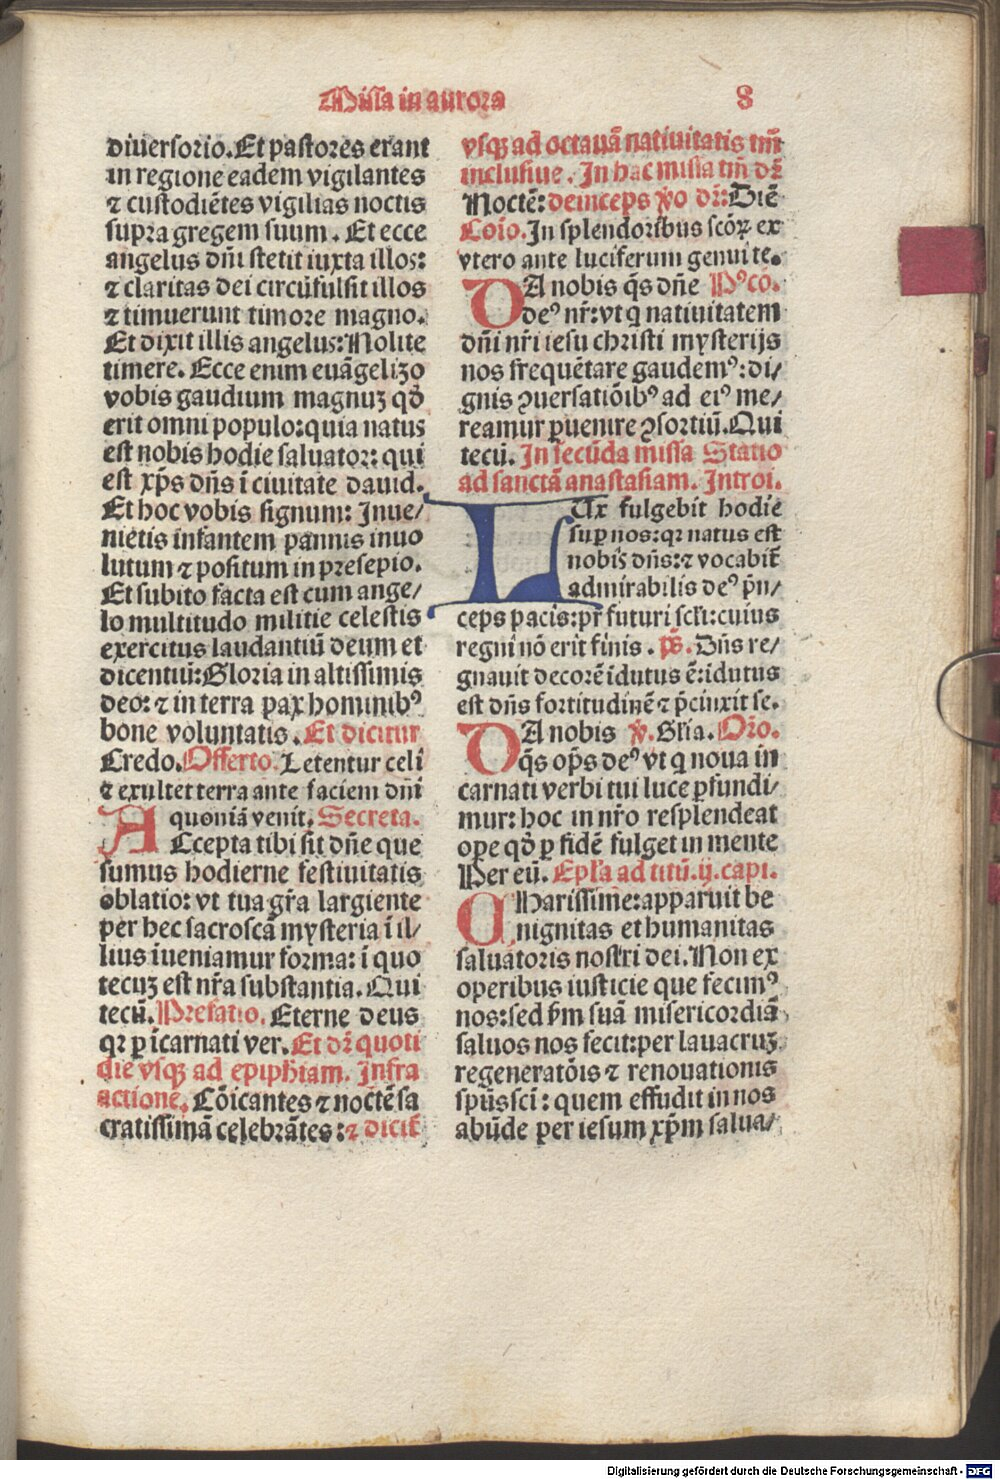 Missa in aurora
8
diuersorio. Et pastores erant
in regione eadem vigilantes
⁊ custodiẽtes vigilias noctis
supra gregem suum. Et ecce
angelus dñi stetit iuxta illos:
⁊ claritas dei circũfulsit illos
⁊ timuerunt timore magno.
Et dixit illis angelus: Nolite
timere. Ecce enim euãgelizo
vobis gaudium magnuʒ qđ
erit omni populo: quia natus
est nobis hodie saluator: qui
est xp̃s dñs ĩ ciuitate dauid.
Et hoc vobis signum: Inue/
nietis infantem pannis inuo
lutum ⁊ positum in presepio.
Et subito facta est cum ange/
lo multitudo militie celestis
exercitus laudantiũ deum et
dicentiũ: Gloria in altissimis
deo: ⁊ in terra pax hominibꝰ
bone voluntatis. Et dicitur
Credo. Offerto. Letentur celi
⁊ exultet terra ante faciem dñi
quoniã venit. Secreta.
ACcepta tibi sit dñe que
sumus hodierne festiuitatis
oblatio: vt tua gr̃a largiente
per hec sacroscã mysteria ĩ il/
lius ĩueniamur forma: ĩ quo
tecuʒ est nr̃a substantia. Qui
tecũ. Prefatio. Eterne deus
qꝛ ꝑ ĩcarnati ver. Et dr̃ quoti
die vsqꝫ ad epiphiam. Infra
actionẽ. Cõicantes ⁊ noctẽ sa
cratissimã celebrãtes: ⁊ dicit̃
vsqꝫ ad octauã natiuitatis tm̃
inclusiue. In hac missa tm̃ dr̃
Noctẽ: deinceps ṽo dr̃: Diẽ
Cõio. In splendoribus scõꝝ ex
vtero ante luciferum genui te.
DA nobis q̃s dñe Pꝰcõ.
deꝰ nr̃: vt q natiuitatem
dñi nr̃i iesu christi mysterijs
nos frequẽtare gaudemꝰ: di/
gnis ꝯuersatiõibꝰ ad eiꝰ me/
reamur ꝑuenire ꝯsortiũ. Qui
tecũ. In secũda missa Statio
ad sanctã anastasiam. Introi.
LUx fulgebit hodie
suꝑ nos: qꝛ natus est
nobis dñs: ⁊ vocabit̃
admirabilis deꝰ p̃n/
ceps pacis: pr̃ futuri scl̃i: cuius
regni nõ erit finis. p̃s. Dñs re/
gnauit decorẽ ĩdutus ẽ: ĩdutus
est dñs fortitudinẽ ⁊ p̃cinxit se.
DA nobis ℣. Gl̃ia. Or̃o.
q̃s op̃s deꝰ vt q noua in
carnati verbi tui luce ꝑfundi/
mur: hoc in nr̃o resplendeat
ope qđ ꝑ fidẽ fulget in mente
Per eũ. Epl̃a ad titũ. ij. capi.
CHarissime: apparuit be
nignitas et humanitas
saluatoris nostri dei. Non ex
operibus iusticie que fecimꝰ
nos: sed ẜm suã misericordiã
saluos nos fecit: per lauacruʒ
regeneratõis ⁊ renouationis
sp̃ussci: quem effudit in nos
abũde per iesum xp̃m salua/
Digitalisierung gefördert durch die Deutsche Forschungsgemeinschaft - DFG